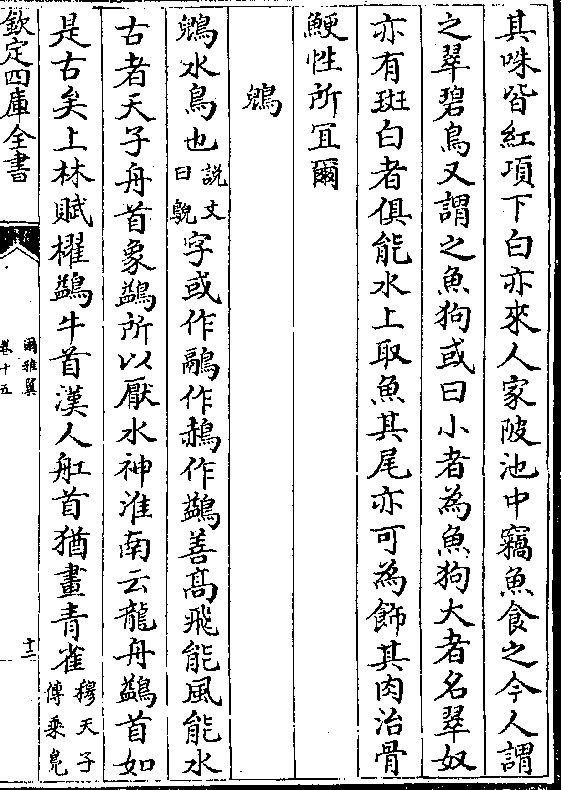 其咮皆紅項下白亦來人家陂池中竊魚食之今人謂
之翠碧鳥又謂之魚狗或曰小者為魚狗大者名翠奴
亦有斑白者俱能水上取魚其尾亦可為飾其肉治骨
鯁性所宜爾
鶂
鶂水鳥也說文曰鶃字或作鷊作鶮作鷁善髙飛能風能水
古者天子舟首象鷁所以厭水神淮南云龍舟鷁首如
是古矣上林賦櫂鷁牛首漢人舡首猶畫青雀穆天子傳乘鳧
欽定四庫全書
爾雅翼
卷十五
十三